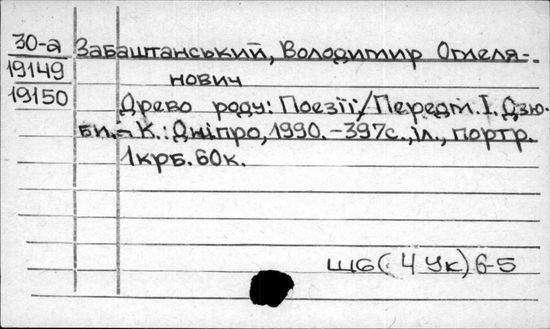 30-а Забаштанський, Володимир Омеля-
19149 нович
19150 Древо роду: Поезії/Передм. І. Дзю-
би.– К.: Дніпро, 1990.–397с., іл., портр.
1крб. 60к.
Ш6(4Ук)6-5